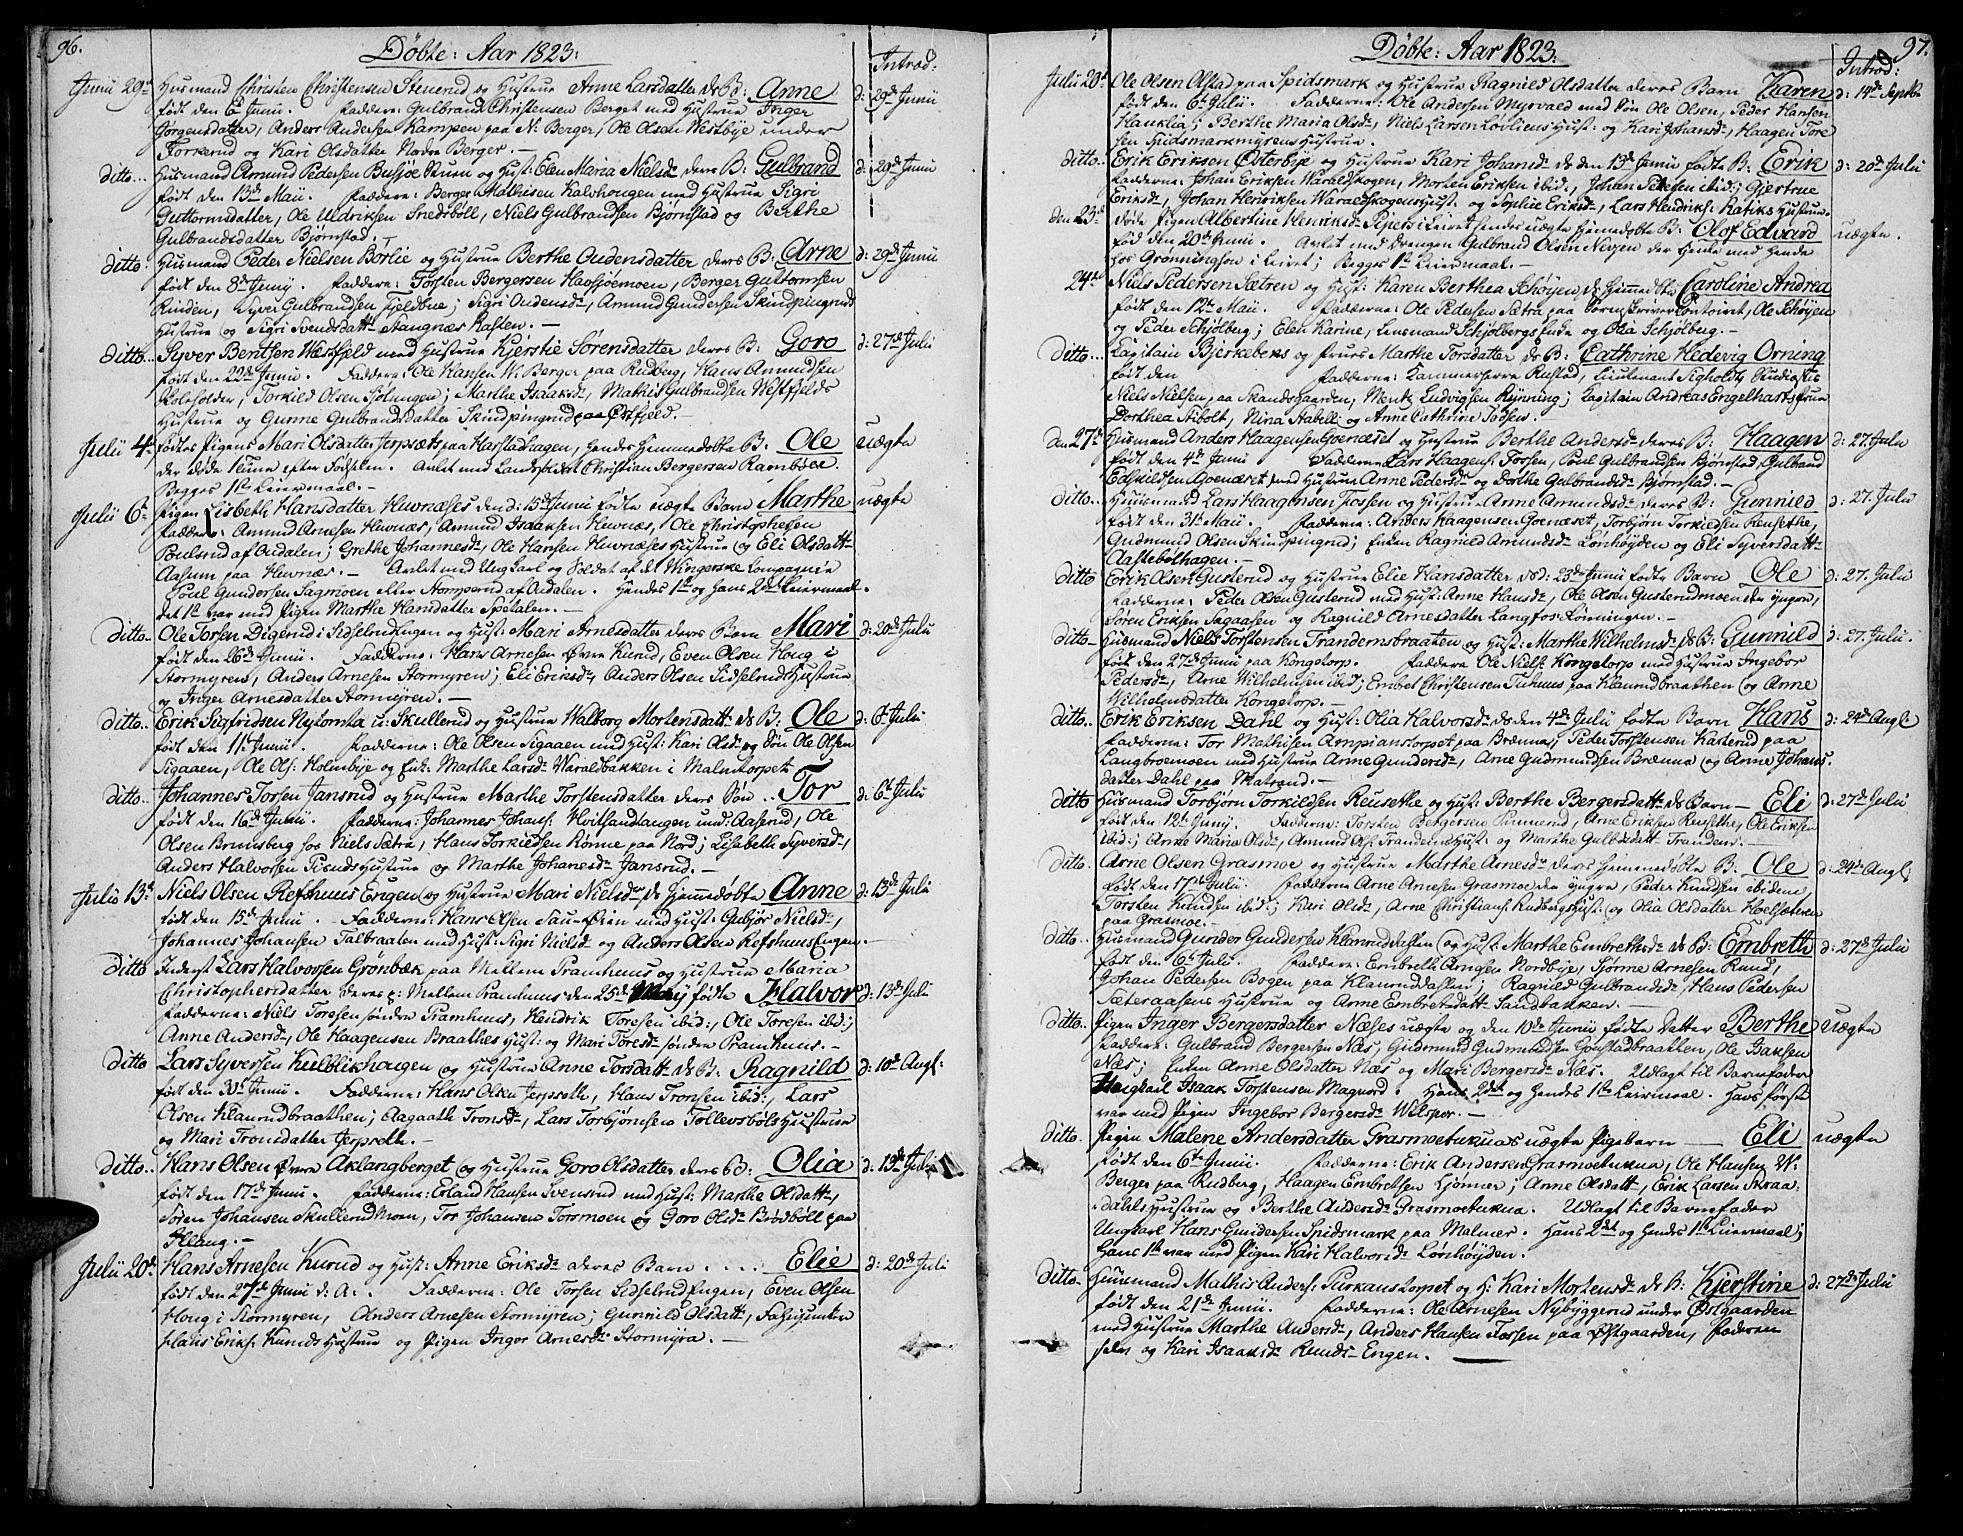 96.
Döbte: Aar 1823:
Introd:
Junii 29de Husmand Christen Christensen Stenerud og Hustrue Anne Larsdatter de B: Anne d: 29de Junii
født den Junii. Faddere: Gulbrand Christensen Berget med Hustrue Inger
Jørgensdatter, Anders Andersen Kampen paa N: Berger, Ole Olsen Westbye under
Torkerud og Kari Olsdatter Nordre Berger.-
ditto.. Husmand Amund Pedersen og Hust: Elen Maria Nielsd: deres B: Gulbrand d: 29de Junii
født den 13de Maii. Faddere: Berger Mathisen Kalvhougen med Hustrue Sigri
Guttormsdatter, Ole Uldriksen Snedsböll, Niels Gulbrandsen Björnstad og Berthe
Gulbrandsdatter Björnstad.-
ditto. Husmand Peder Nielsen Borlie og Hustrue Berthe Oudensdatter deres B: Arne d: 29de Junii
født den 8de Junij. Faddere: Torsten Bergersen Hadsjöemoen, Berger Guttormsen
Rinden, Syver Gulbrandsen Fjeldbue; Sigri Oudensd:, Amund Gundersen Skindpungrud
Hustrue og Sigri Svendsdatt: Stangnæs kasten.-
ditto.. Syver Bentsen Wæstfjeld med Hustrue Kjerstie Sörensdatter deres B: Goro d: 27de Julii
født den 22de Junii. Fadderne: Ole Hansen W. Berger paa Rudberg, Hans Amundsen
Roleholder, Torkild Olsen Sjötungen; Marthe Isaaksd:, Mathis Gulbrandsen Westfjelds
Hustrue og Gunne Gulbrandsdatter Skindpungrud paa Østfjeld.-
Julii 4de fødte Pigens Mari Olsdatter Jerpsæt paa Harstadhagen, hendes Hiemmedøbte B: Ole uægte
der døde 1 Time efter Fødselen. Avlet med Christian Bergersen Ramböe.
Begges 1te Leiermaal.-
Julii 6te Pigen Lisbeth Hansdatter Hevnæses den d: 15de Junii fødte uægte Barn Marthe uægte
Faddere: Amund Arnesen Hevnæs, Amund Isaaksen Hevnæs, Ole Christophersen
Poulsrud af Audalen; Grethe Johannesd:, Ole Hansen Hevnæses Hustrue og Eli Olsdatt:
Aasum paa Hevnæs.- Avlet med Ungkarl og Soldat af det Wingerske Compagnie
Poul Gundersen Sagmoen eller Nomperud af Audalen. Hendes 1te og hans 2det Leiermaal.
det 1te var med Pigen Marthe Hansdatter Spetalen.-
ditto.. Ole Torsen Digerud i Sidselrud Engen og Hust: Mari Arnesdatter deres Barn Mari d: 20de Julii
født den 26de Junii. Fadderne: Hans Arnesen Øvre Kurud, Even Olsen Houg i
Stormyren, Anders Arnesen Stormyren; Eli Eriksd:, Anders Olsen Sidselrud Hustrue
og Inger Arnesdatter Stormyren.-
ditto.. Erik Sigfridsen Nytomta i: Skullerud og Hustrue Walborg Mortensdatt: ds B: Ole d: 6te Julii
født den 11te Junii. Fadderne: Ole Olsen Sigaaen med Hust: Kari Olsd: og Søn Ole Olsen
Sigaaen, Ole Ols: Holmbye og Enk: Marthe Larsd: Waraldbakken i Malmtorpet
ditto.. Johannes Torsen Jansrud og Hustrue Marthe Torstensdatter deres Søn .. Tor d: 6te Julii
født den 16de Junii. Fadderne: Johannes Johans: Hvitsandtangen und: Aaserud, Ole
Olsen Brunsberg hos Niels Sætra, Hans Torkildsen Könne paa Nord; Lisebeth Syversd:,
Anders Halvorsen Hustrue og Marthe Johanesd: Jansrud.-
Julii 13de Niels Olsen Refshuus Engen og Hustrue Mari Nielsd: ds Hiemmedøbte Anne d: 13de Julii
født den 15de Junii.- Fadderne: Hans Olsen Sau-Øien med Hust: Gubjör Nielsd:,
Johannes Johansen Talbraaten med Hust: Sigri Nielsd: og Anders Olsen Refshuus Engen.-
ditto Inderst Lars Halvorsen Grönbæk paa Mellem Pramhuus og Hustrue Maria
Christophersdatter deres p: Mellem Pramhuus den 25de May fødte Halvor d: 13de Juli
Fadderne: Niels Toresen söndre Pramhuus, Hendrik Toresen ibid:, Ole Toresen ibid;
Anne Andersd:, Ole Haagensen Braathes Hust: og Mari Toresd: söndre Pramhuus.-
ditto Lars Syversen Kielblikhougen og Hustrue Anne Torsdatt: ds B: Ragnild d: 10de Augl:
født den 30te Junii. Fadderne: Hans Olsen Jerpseth, Hans Tronsen ibid:, Lars
Olsen Klanrudbraathen; Aagaath Tronsd:, Lars Torbjörnsen Tollevsböls Hustrue
og Mari Tronsdatter Jerpseth.-
ditto.. Hans Olsen Øvre Aklangberget og Hustrue Goro Olsdatter deres B: Olia d: 13de Julii
født den 17de Junii. Fadderne: Erland Hansen Svensrud med Hust: Marthe Olsdatt:,
Sören Johansen Skullerud Moen, Tor Johansen Torsmoen og Goro Olsd: Brödböll paa
Aklang.-
Julii 20de Hans Arnesen Kurud og Hust: Anne Eriksd: deres Barn .... Elie d: 20de Juli
født den 27de Junii d: A:. Fadderne: Ole Torsen Sidselrud Engen, Even Olsen
Houg i Stormyren, Anders Arnesen Stormyren; Gunnild Olsdatt:,
Hans Eriks: Kuruds Hustrue og Pigen Inger Arnesd: Stormyra.-
97.
Döbte: Aar 1823:
Introd:
Julii 20de Ole Olsen Alstad paa Spidsmark og Hustrue Ragnild Olsdatter deres Barn Karen d: 14de Septbr
født den 6te Julii. Fadderne: Ole Andersen Myrvold med Søn Ole Olsen, Peder Hansen
Hauklia; Berthe Maria Olsd:, Niels Larsen Løvliens Hust: og Kari Johansd:, Haagen Tore
sen Spidsmarkmyrens Hustrue.
ditto.. Erik Eriksen Østerbye og Hustrue Kari Johansd: ds den 13de Junii fødte B: Erik d: 20de Julii
Fadderne: Johan Eriksen Waraldskogen, Morten Eriksen ibid:, Johan Pedersen ibid; Gjertrue
Eriksd:, Johan Henriksen Waraldskogens Hust: og Sophie Eriksd:, Lars Hendriks: Ratiks Hustrue.
den 23de døde Pigen Albertine Henriksd: Pipers i Leiret hendes uægte Hiemdøbte B: Olof Edvard uægte.
fød den 20de Junii. Avlet med Drengen Gulbrand Olsen Nevsen der tiente med hende
hos Grönningson i Leiret; Begges 1te Leiermaal.-
24de Niels Pedersen Sætren og Hust: Karen Berthea Schöyen ds Hiemedøbte Caroline Andrea
født den 12te Maii. Faddere: Ole Pedersen Sætra paa Sorenskriver Contoiret, Ole Schöyen
og Peder Schjölberg; Elen Karine, Lensmand Schjölbergs Frue og Olia Schjölberg.-
ditto... Capitain Bjerkebeks og Frues Marthe Torsdatter ds B: Cathrine Hedevig Orning
født den Fadderne: Kammerherre Rustad, Lieutenant Sigholdt, Studiosus
Niels Nielsen, paa Skandsgaarden, Menk Ludvigsen Rynning; Capitain Andreas Engelharts Frue
Dorthea Stibolt, Nina Stabell og Anne Cathrine Todsen.
den 27de Husmand Anders Haagensen Goenæset og Hustrue Berthe Andersd: deres B: Haagen d: 27. Julii
født den 4de Junii Fadderne Lars Haagens: Fossen, Poul Gulbrandsen Björnstad, Gulbrand
Edskildsen Goenæset med Hustrue Anne Pedersd: og Dorthe Gulbrandsd: Björnstad.-
ditto. Huusmand Lars Haagensen Fossen og Hustrue Anne Amundsd: deres B: Gunnild d: 27. Julii
født den 31te Maii. Fadderne: Anders Haagensen Goenæset, Torbjörn Torkildsen Reusethe,
Gudmund Olsen Skindpungrud; Enken Ragnild Amundsd: Lönhöyden og Eli Syversdatt:
Aastebolhagen.-
ditto Erik Olsen Gusterud og Hustrue Elie Hansdatter ds d: 23de Junii fødte Barn Ole d: 27. Julii
Fadderne: Peder Olsen Gusterud med Hust: Anne Hansd:, Ole Olsen Gusterudmoen den yngre,
Sören Eriksen Sagaasen og Ragnild Arnesdatter Langfos Lönningen.-
ditto- Husmand Niels Torstensen Trandemsbraaten og Hust: Marthe Wilhelmsd: ds B: Gunnild d: 27. Julii.
født den 27de Junii paa Kongetorp. Faddere Ole Niels: Kongetorp med Hustrue Ingebor
Pedersd:, Arne Wilhelmsen ibid; Embet Christensen Tuhuus paa Klanrudbraathen og Anne
Wilhelmsdatter Kongetorp.-
ditto.. Erik Eriksen Dahl og Hust: Olia Halvorsd: ds den 4de Julii fødte Barn Hans d: 24de Augl:
Fadderne: Tor Mathisen Ampianstorpet paa Brænna, Peder Torstensen Kasterud paa
Langbroemoen med Hustrue Arne Gundersd:, Arne Gudmundsen Brænna og Anne Johans:
datter Dahl paa Matrand.-
ditto Husmand Torbjörn Torkildsen Reusethe og Hust: Berthe Bergersdatt: ds Barn- Eli d: 27de Julii
født den 12te Junij. Fadderne: Torsten Bergersen Pinnerud, Arne Eriksen Reusethe, Ole Eriksen
ibid:; Arne Maria Olsd:, Amund Ols: Trandems Hust: og Marthe Gulbsdatt: Trandem.-
ditto. Arne Olsen Grasmoe og Hustrue Marthe Arnesd: deres Hjemmedøbte B: Ole d: 24de Augl:
født den 17de Julii. Fadderne Arne Arnesen Grasmoe den yngre, Peder Knudsen ibidem,
Torsten Knudsen ibid:; Kari Olsd:, Arne Christians: Rudbergs Hust: og Olia Olsdatter Hoelsæteren
paa Grasmoe.-
ditto.. Husmand Gunder Gundersen Klanruddalsen og Hust: Marthe Embrethsd: ds B: Embreth d: 27de Julii
født den 6te Julii. Fadderne: Embreth Arnesen Nordbye, Sjönne Arnesen Ruud,
Johan Pedersen Bogen paa Klanruddalsen; Ragnild Gulbrandsd:, Hans Pedersen
Sæteraasens Hustrue og Arne Embretsdatt: Sandbakken.-
ditto.. Pigen Inger Bergersdatter Næses uægte og den 10de Junii fødte Datter Berthe uægte
Faddere: Gulbrand Bergersen Næs, Gudmund Gudmundsen Goestadbraatten, Ole Isaksen
Næs; Enken Anne Olsdatter Næs og Mari Bergersd: Næs. Udlagt til Barnefader
Ungkarl Isaak Torstensen Magnord. Hans 2det og Hendes 1te Leiermaal. Hans første
var med Pigen Ingebor Bergersd: Wilspor.-
ditto. Pigen Malene Andersdatter Grasmoetukuas uægte Pigebarn - Eli uægte
født den 6te Junii. Fadderne: Erik Andersen Grasmoetukua, Ole Hansen W:
Berger paa Rudberg, Haagen Embretsen Ljömer; Anne Olsdatt:, Erik Larsen Skraa-
dahls Hustrue og Berthe Andersd: Grasmoetukua. Udlagt til Barnefader
Ungkarl Hans Gundersen Spidsmark paa Malmer. Hans 2det og hendes 1te Leiermaal;
hans 1te var med Pigen Kari Halvorsd: Lönhöyden.
ditto. Huusmand Mathis Anders: Purkanstorpet og H: Kari Mortensd: ds B: Kjerstine d: 27de Julii
født den 21de Junii. Fadderne: Ole Arnesen Nybyggerud under Østgaarden
med Hustrue Marthe Andersd:, Anders Hansen Fossen paa Østgaarden, Faderen
selv og Kari Isaaksd: Ruuds-Engen.